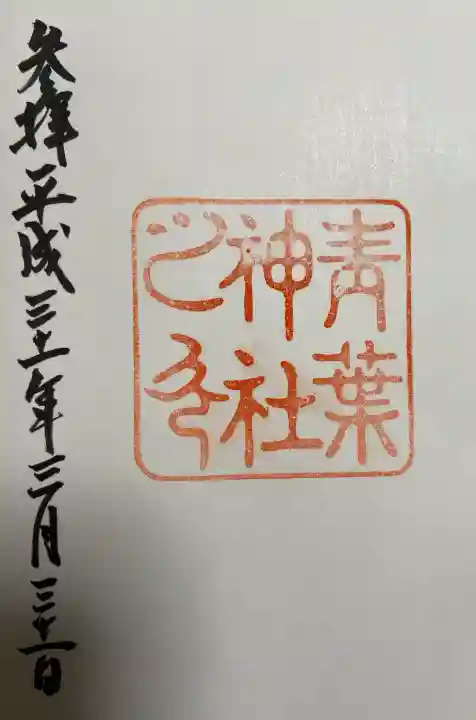 青葉
神社
之印
参拝平成三十一年三月三十一日